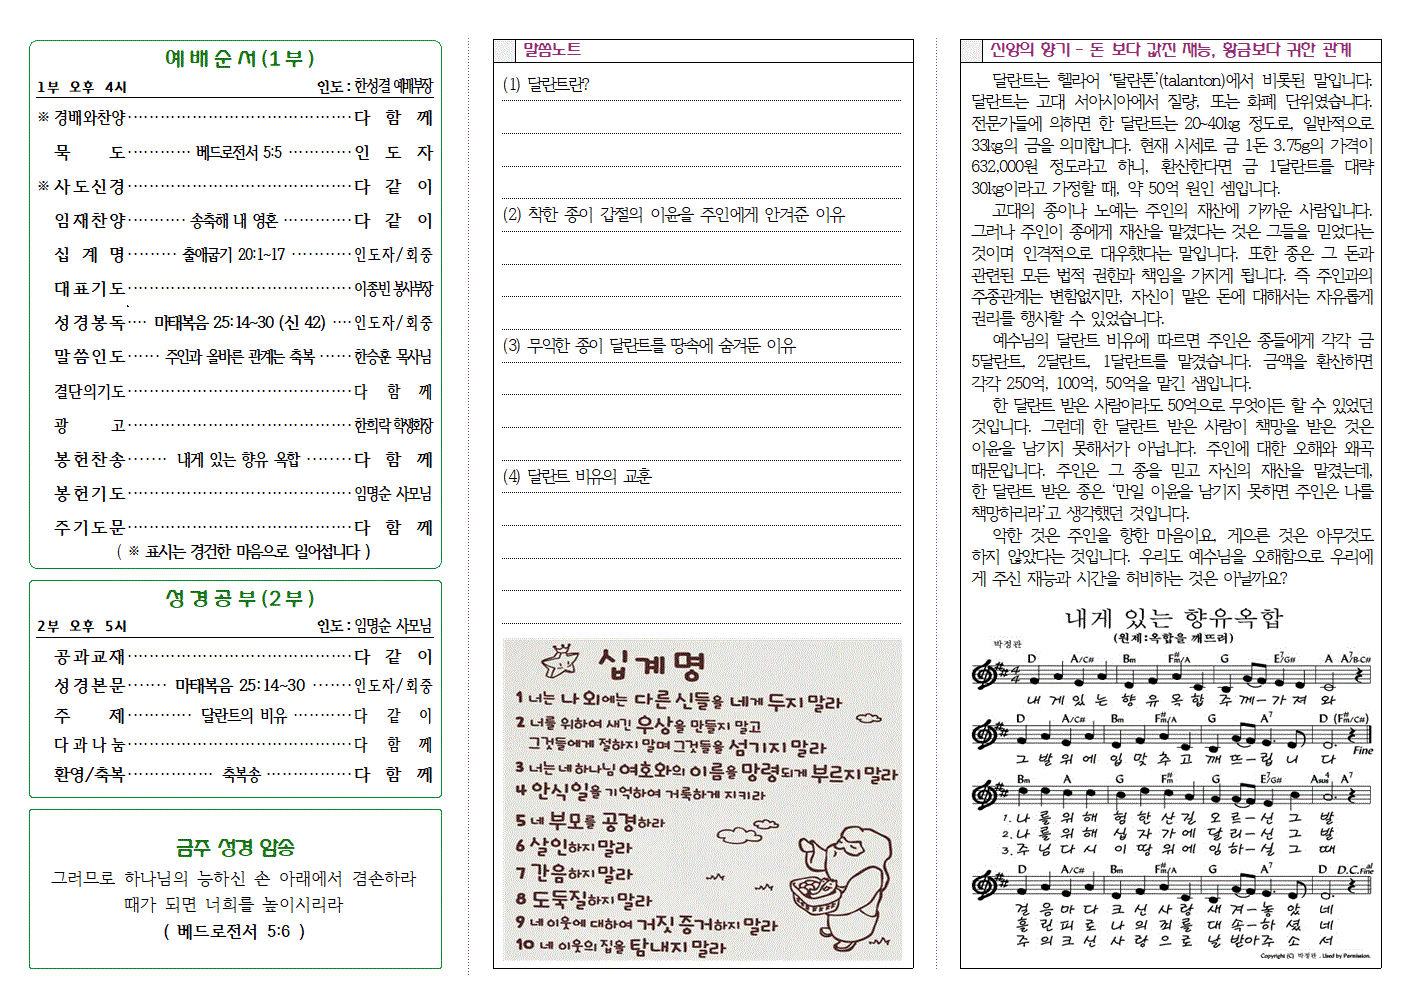 예 배 순 서 ( 1 부 )
1부 오후 4시 인도 : 한성결 예배부장
※ 경배와찬양 ········ 다 함 께
묵 도 ········ 베드로전서 5:5 ········ 인 도 자
※ 사도신경 ········ 다 같 이
임재찬양 ········ 송축해 내 영혼 ········ 다 같 이
십 계 명 ········ 출애굽기 20:1~17 ········ 인도자/회중
대표기도 ········ 이종빈 봉사부장
성경봉독 ···· 마태복음 25:14~30 (신 42) ···· 인도자/회중
말씀인도 ······ 주인과 올바른 관계는 축복 ······ 한승훈 목사님
결단의기도 ········ 다 함 께
광 고 ········ 한희락 학생회장
봉헌찬송 ······· 내게 있는 향유 옥합 ········ 다 함 께
봉헌기도 ········ 임명순 사모님
주기도문 ········ 다 함 께
( ※ 표시는 경건한 마음으로 일어섭니다 )
성 경 공 부 ( 2 부 )
2부 오후 5시 인도 : 임명순 사모님
공과교재 ········ 다 같 이
성경본문 ······· 마태복음 25:14~30 ······· 인도자/회중
주 제 ············ 달란트의 비유 ··········· 다 같 이
다과나눔 ········ 다 함 께
환영/축복 ················ 축복송 ················ 다 함 께
금주 성경 암송
그러므로 하나님의 능하신 손 아래에서 겸손하라
때가 되면 너희를 높이시리라
( 베드로전서 5:6 )
말씀노트
(1) 달란트란?
(2) 착한 종이 갑절의 이윤을 주인에게 안겨준 이유
(3) 무익한 종이 달란트를 땅속에 숨겨둔 이유
(4) 달란트 비유의 교훈
십계명
1 너는 나 외에는 다른 신들을 네게 두지 말라
2 너를 위하여 새긴 우상을 만들지 말고
그것들에게 절하지 말며 그것들을 섬기지 말라
3 너는 네 하나님 여호와의 이름을 망령되게 부르지 말라
4 안식일을 기억하여 거룩하게 지키라
5 네 부모를 공경하라
6 살인하지 말라
7 간음하지 말라
8 도둑질하지 말라
9 네 이웃에 대하여 거짓 증거하지 말라
10 네 이웃의 집을 탐내지 말라
신앙의 향기 - 돈 보다 값진 재능, 황금보다 귀한 관계
달란트는 헬라어 ‘탈란톤’(talanton)에서 비롯된 말입니다.
달란트는 고대 서아시아에서 질량, 또는 화폐 단위였습니다.
전문가들에 의하면 한 달란트는 20~40kg 정도로, 일반적으로
33kg의 금을 의미합니다. 현재 시세로 금 1돈 3.75g의 가격이
632,000원 정도라고 하니, 환산한다면 금 1달란트를 대략
30kg이라고 가정할 때, 약 50억 원인 셈입니다.
고대의 종이나 노예는 주인의 재산에 가까운 사람입니다.
그러나 주인이 종에게 재산을 맡겼다는 것은 그들을 믿었다는
것이며 인격적으로 대우했다는 말입니다. 또한 종은 그 돈과
관련된 모든 법적 권한과 책임을 가지게 됩니다. 즉 주인과의
주종관계는 변함없지만, 자신이 맡은 돈에 대해서는 자유롭게
권리를 행사할 수 있었습니다.
예수님의 달란트 비유에 따르면 주인은 종들에게 각각 금
5달란트, 2달란트, 1달란트를 맡겼습니다. 금액을 환산하면
각각 250억, 100억, 50억을 맡긴 샘입니다.
한 달란트 받은 사람이라도 50억으로 무엇이든 할 수 있었던
것입니다. 그런데 한 달란트 받은 사람이 책망을 받은 것은
이윤을 남기지 못해서가 아닙니다. 주인에 대한 오해와 왜곡
때문입니다. 주인은 그 종을 믿고 자신의 재산을 맡겼는데,
한 달란트 받은 종은 ‘만일 이윤을 남기지 못하면 주인은 나를
책망하리라’고 생각했던 것입니다.
악한 것은 주인을 향한 마음이요, 게으른 것은 아무것도
하지 않았다는 것입니다. 우리도 예수님을 오해함으로 우리에
게 주신 재능과 시간을 허비하는 것은 아닐까요?
내게 있는 향유옥합
(원제:옥합을 깨뜨려)
박정관
D A/C# Bm F#m/A G E7/G# A A7/B·C#
내 게 있 는 향 유 옥 합 주 께-가 져 와
D A/C# Bm F#m/A G A7 D (F#m/C#)
Fine
그 발 위 에 입 맞 추 고 깨 뜨-립 니 다
Bm A G F#m G E7/G# Asus4 A7
1. 나 를 위 해 험 한 산 길 오 르-신 그 발
2. 나 를 위 해 십 자 가 에 달 리-신 그 발
3. 주 님 다 시 이 땅 위 에 임 하-실 그 때
D A/C# Bm F#m/A G A7 D D.C. al Fine
걸 음 마 다 크 신 사 랑 새 겨-놓 았 네
흘 린 피 로 나 의 죄 를 대 속-하 셨 네
주 의 크 신 사 랑 으 로 날 받아주 소 서
Copyright (C) 박정관 . Used by Permission.